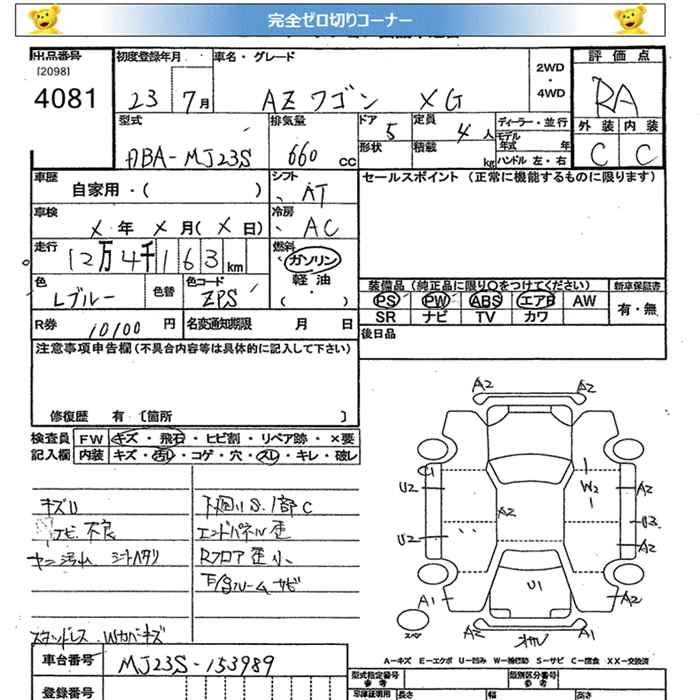 完全ゼロ切りコーナー
出品番号
[2098]
4081
初度登録年月
23 7月
車名・グレード
AZワゴン XG
2WD
・4WD
評価点
RA
外装 内装
C C
型式
ABA-MJ23S
排気量
660 cc
ドア 5
形状
定員 4 人
積載 kg
ディーラー・並行
モデル年式 年
ハンドル 左・右
車歴
自家用・( )
シフト
AT
セールスポイント (正常に機能するものに限ります)
車検
X 年 X 月( X 日)
冷房
AC
走行
12万4千163km
燃料
ガソリン
軽油
( ・ )
色
Lブルー
色替
色コード
ZPS
装備品 (純正品に限り○をつけてください)
PS PW ABS エアB AW
SR ナビ TV カワ
新車保証書
有・無
R券 10100 円
名変通知期限 月 日
後日品
注意事項申告欄(不具合内容等は具体的に記入して下さい)
修復歴 有 [箇所 ]
検査員記入欄
FW キズ・飛石・ヒビ割・リペア跡・×要
内装 キズ・汚レ・コゲ・穴・スレ・キレ・破レ
キズU
ナビ不良
下回りS.1部C
エンドパネル歪
Rフロア歪小
シートハタリ
スタッドレス Wカバーキズ
A2 A2
C1
U2
U2
A2
W2
A2
U3
A2
U1
A1
A2
A2
A2
A-キズ E-エクボ U-凹み W-補修跡 S-サビ C-腐食 XX-交換済
車台番号
MJ23S-153989
登録番号
型式指定番号
参考
類別区分番号
参考
車庫証明用
長さ 幅 高さ